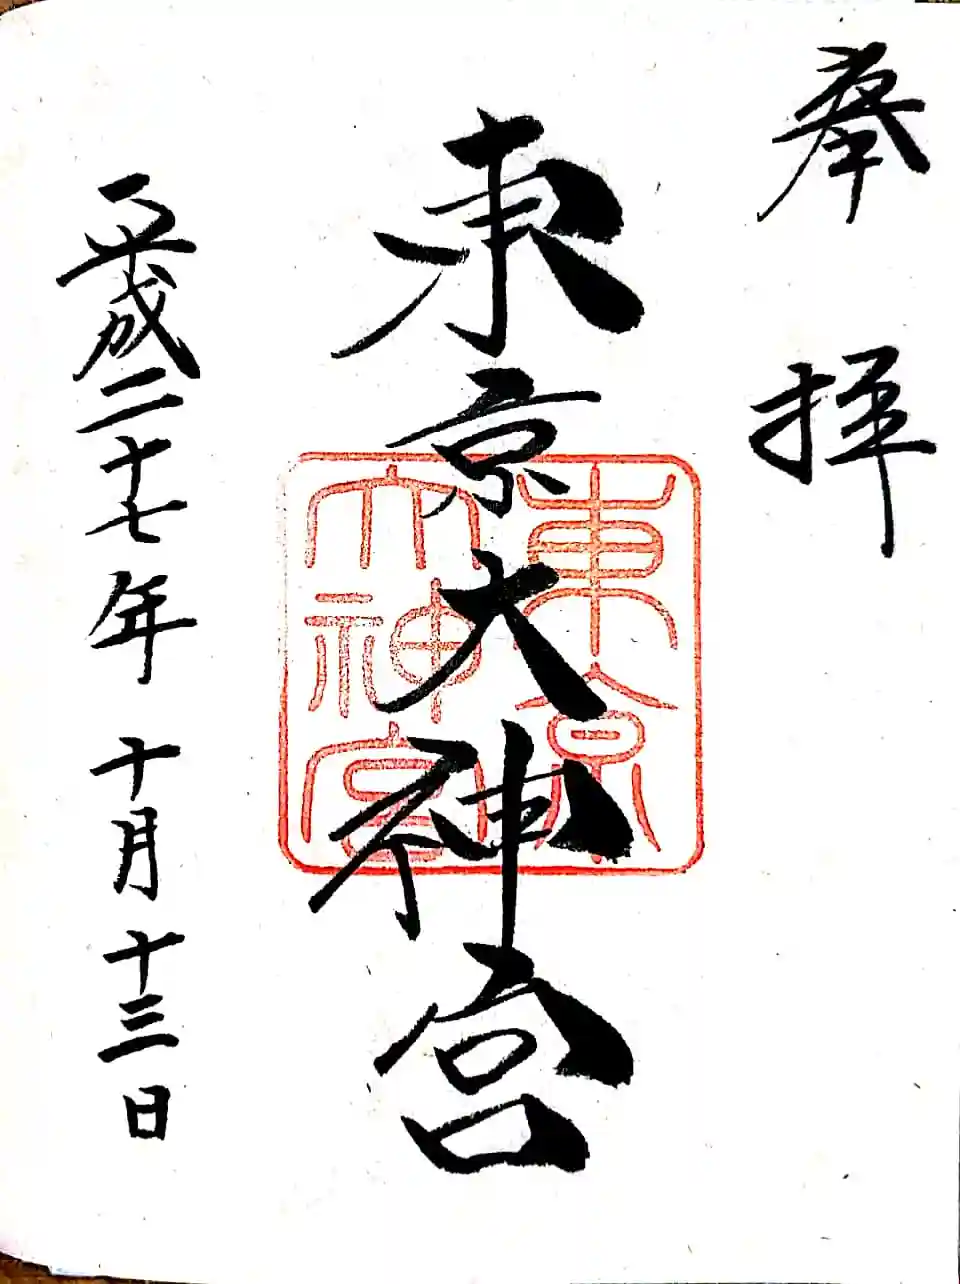 奉拝
東京大神宮
東京
大神宮
平成二十七年十月十三日